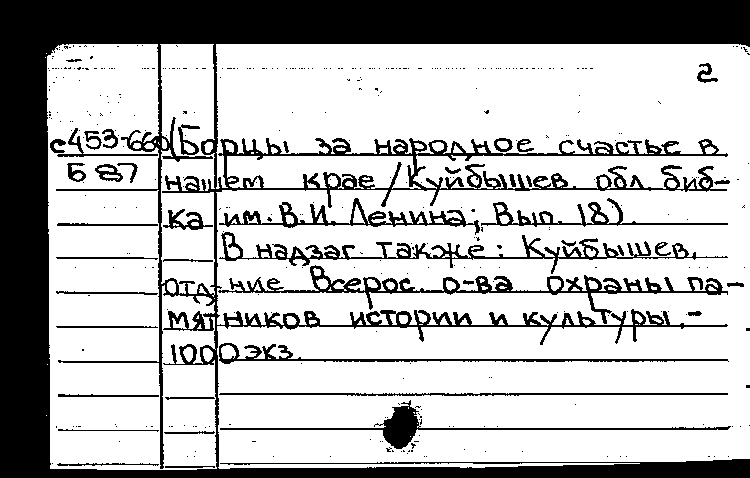 2
с453-660 (Борцы за народное счастье в
Б 87 нашем крае / Куйбышев. обл. биб-
ка им. В.И. Ленина; Вып. 18).
В надзаг. также: Куйбышев,
отд-ние Всерос. о-ва охраны па-
мятников истории и культуры. -
1000 экз.